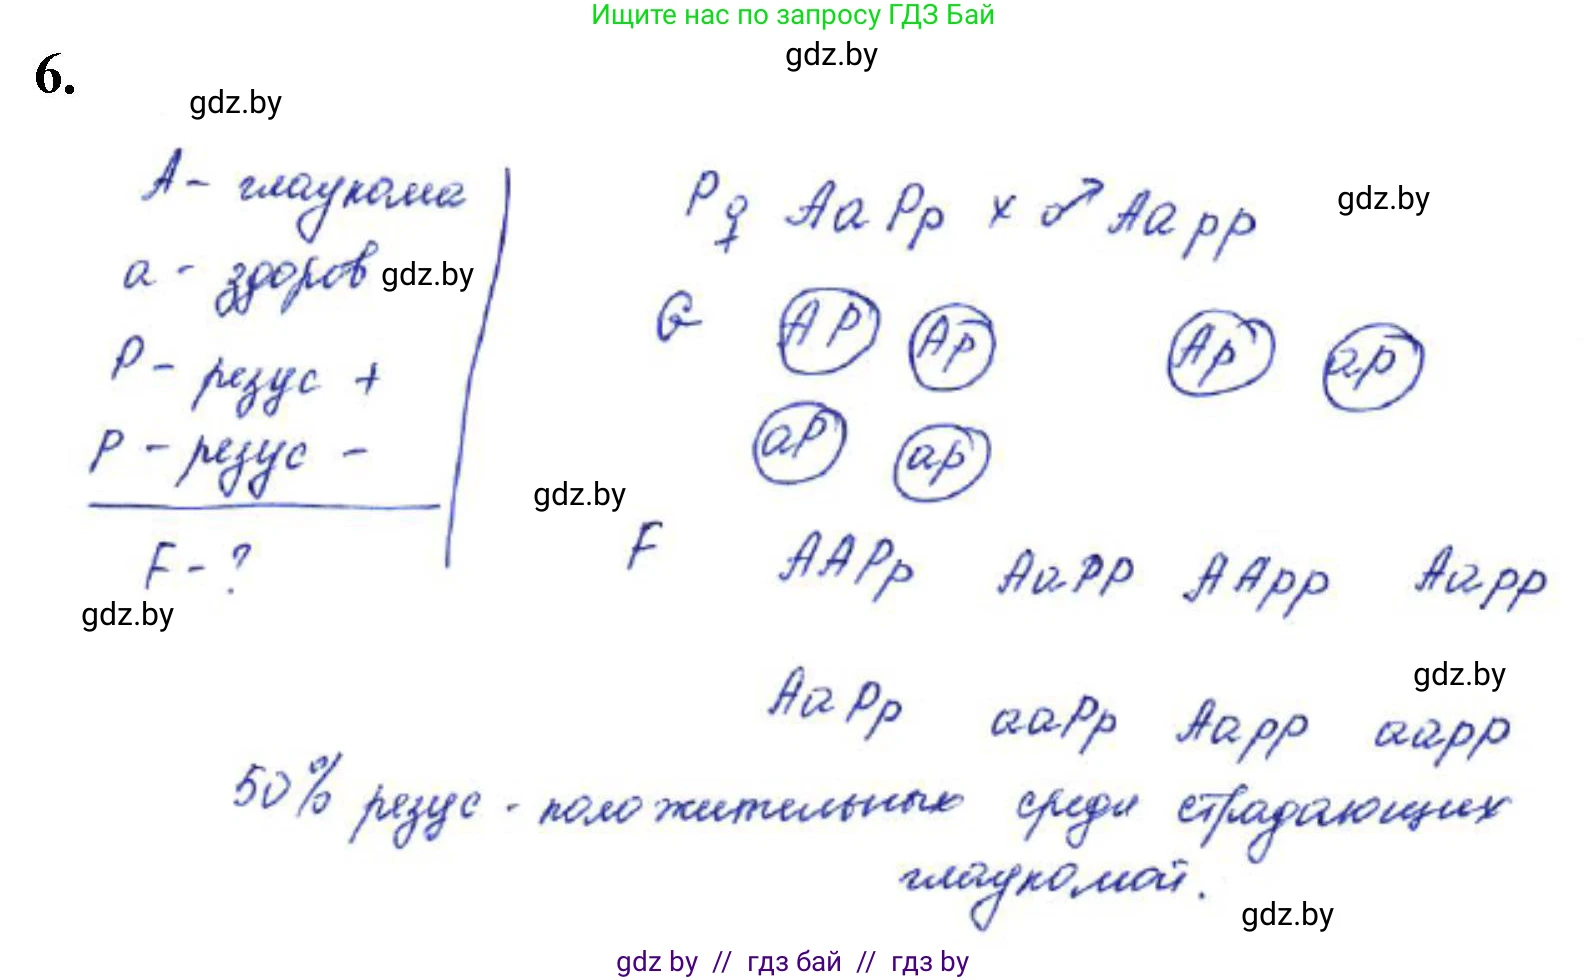 Ищите нас по запросу ГДЗ Бай
gdz.by
6.
gdz.by
A - глаукома
P ♀ AaPp x ♂ Aapp
gdz.by
a - здоров
gdz.by
G AP Ap Ap ap
P - резус +
aP ap
p - резус -
gdz.by
F AAPp AaPp AApp Aapp
F - ?
gdz.by
gdz.by
AaPp aaPp Aapp aapp
50% резус - положительных среди страдающих
глаукомой.
gdz.by
gdz by // гдз бай // гдз by